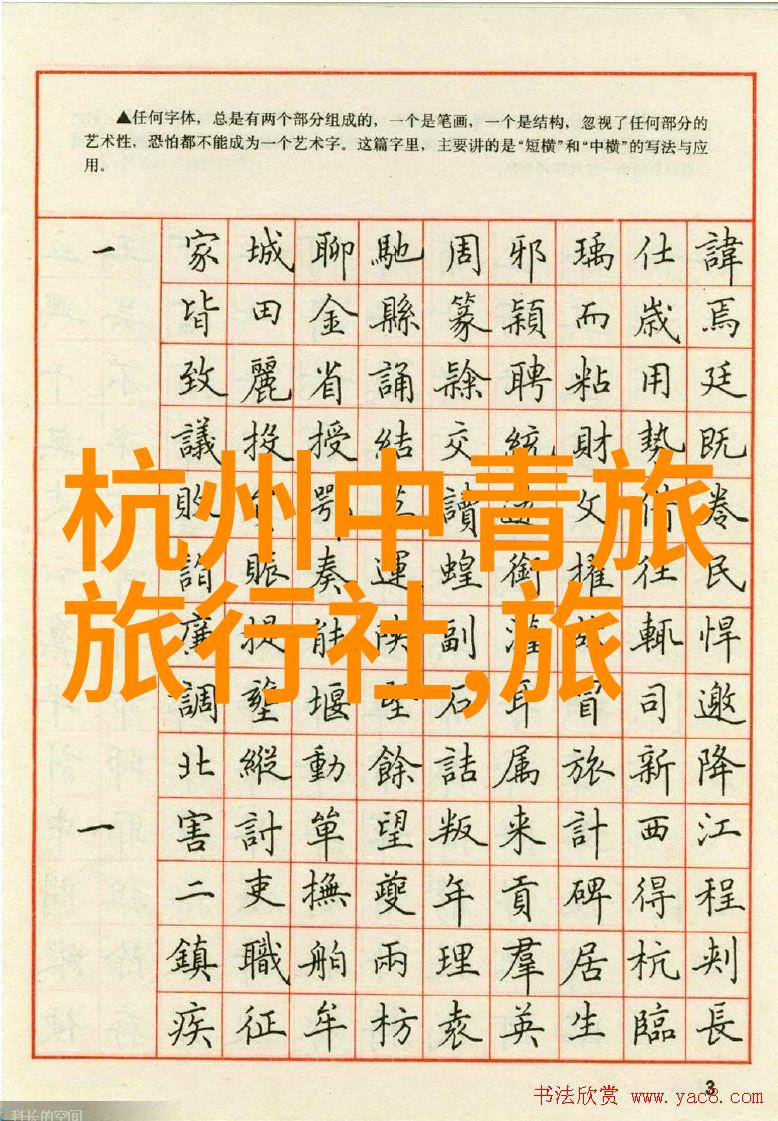 ▲任何字体，总是有两个部分组成的，一个是笔画，一个是结构，忽视了任何部分的
艺术性，恐怕都不能成为一个艺术字。这篇字里，主要讲的是“短横”和“中横”的写法与应
用。
一 家 城 聊 馳 周 邪 瑀 仕 諱
皆 田 金 縣 篆 穎 而 歲 焉
致 麗 省 誦 隸 聘 粘 用 廷
議 投 授 結 交 統 財 勢 既
杭州中青旅
敗 鄂 讀 文 卷
詣 賑 奏 運 蝗 銜 擢 往 民
旅行社,旅
廉 提 能 陝 副 故 輒 悍
調 堰 堅 石 耳 冒 司 邀
北 縱 動 餘 詰 属 旅 新 降
一 害 討 單 望 叛 来 計 西 江
二 吏 撫 夔 年 貢 碑 得 程
鎮 職 舶 兩 理 羣 居 杭 刺
疾 征 牟 枋 袁 英 生 臨 長
3
书法欣赏 www.yac8.com
科长的空间